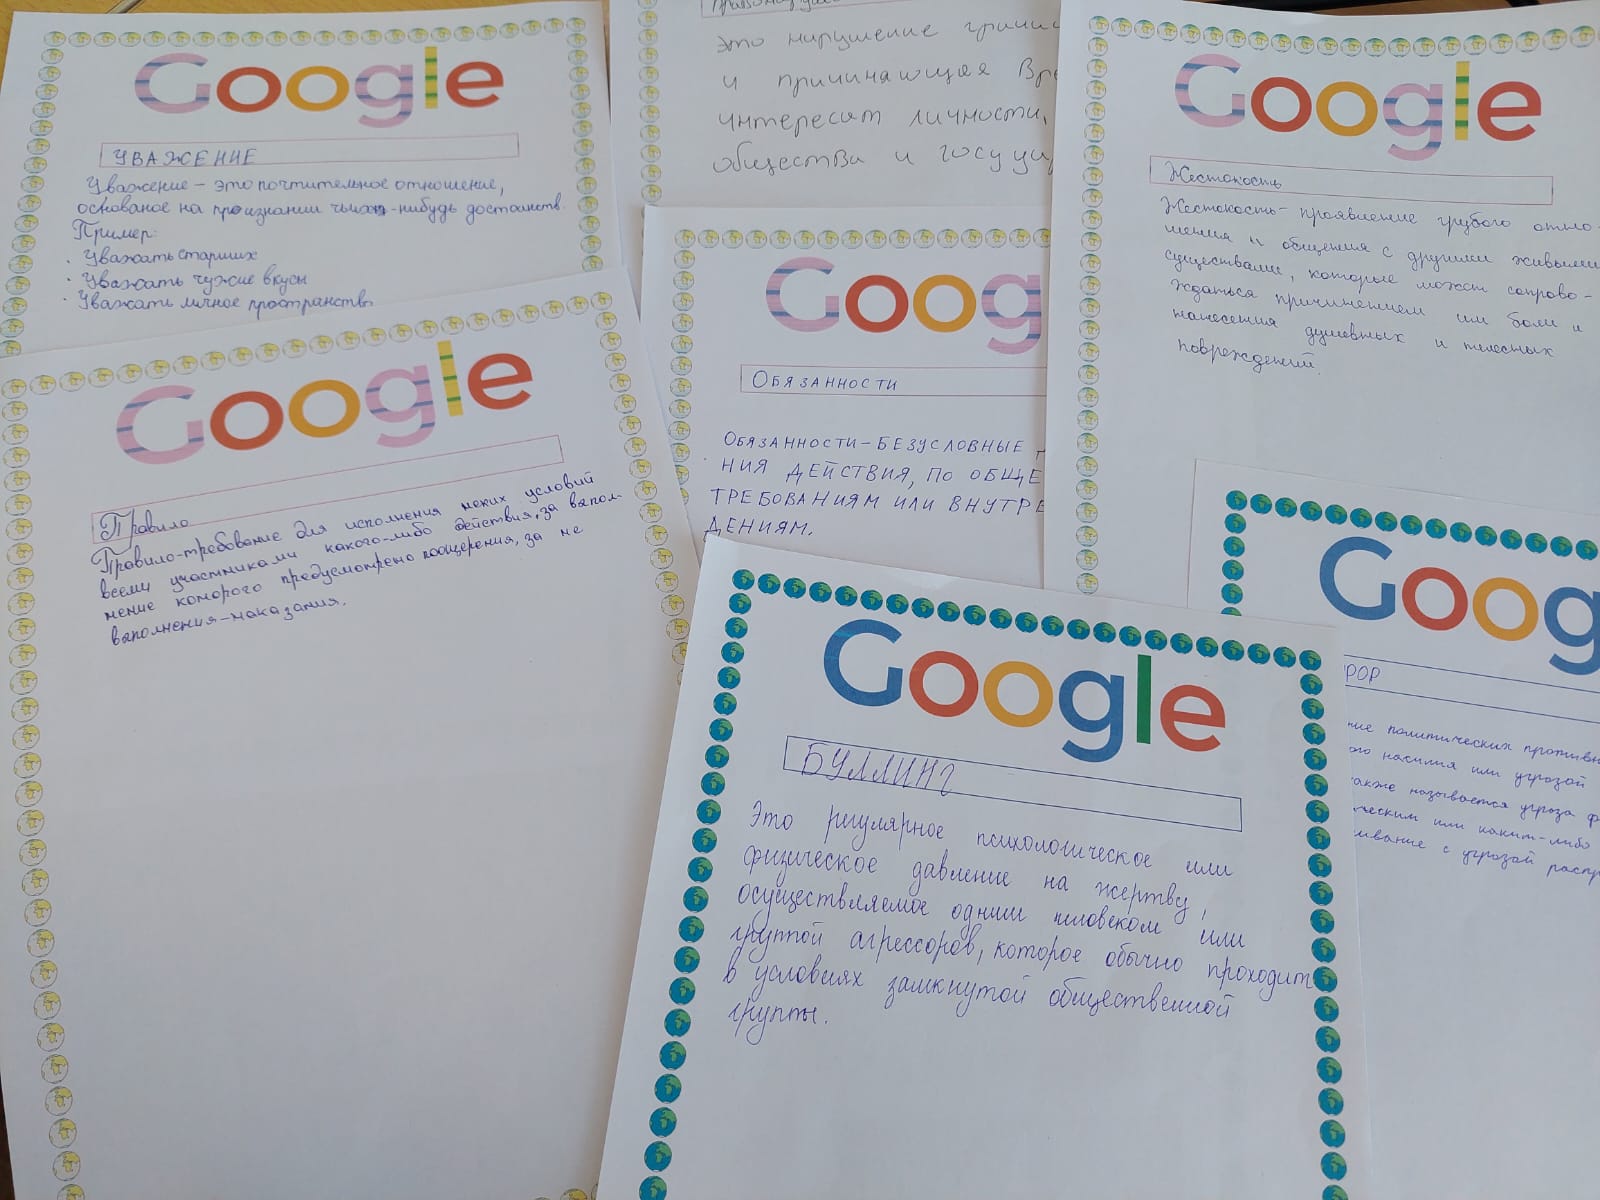 Google
УВАЖЕНИЕ
Уважение – это почтительное отношение,
основаное на признании чьих-нибудь достоинств.
Пример:
· Уважать старших
· Уважать чужие вкусы
· Уважать личное пространство
это нарушение
и причиняющая
интересам личности,
общества и
Google
Жестокость
Жестокость - проявление грубого отно-
шения и общения с другими живыми
существами, которые может сопрово-
ждаться причинением им боли и
нанесения душевных и телесных
повреждений.
Google
Правило
Правило-требование для исполнения неких условий
всеми участниками какого-либо действия, за выпол-
нение которого предусмотрено поощерения, за не
выполнения-наказания.
Goog
ОБЯЗАННОСТИ
ОБЯЗАННОСТИ – БЕЗУСЛОВНЫЕ
НИЯ ДЕЙСТВИЯ, ПО ОБЩЕ
ТРЕБОВАНИЯМ ИЛИ ВНУТРЕ
ДЕНИЯМ.
Goog
РОР
ние политических противн
ого насилия или угрозой
также называется угроза ф
ческим или каким-либо
ивание с угрозой распр
Google
БУЛЛИНГ
Это регулярное психологическое или
физическое давление на жертву,
осуществляемое одним человеком или
группой агрессоров, которое обычно проходит
в условиях замкнутой общественной
группы.